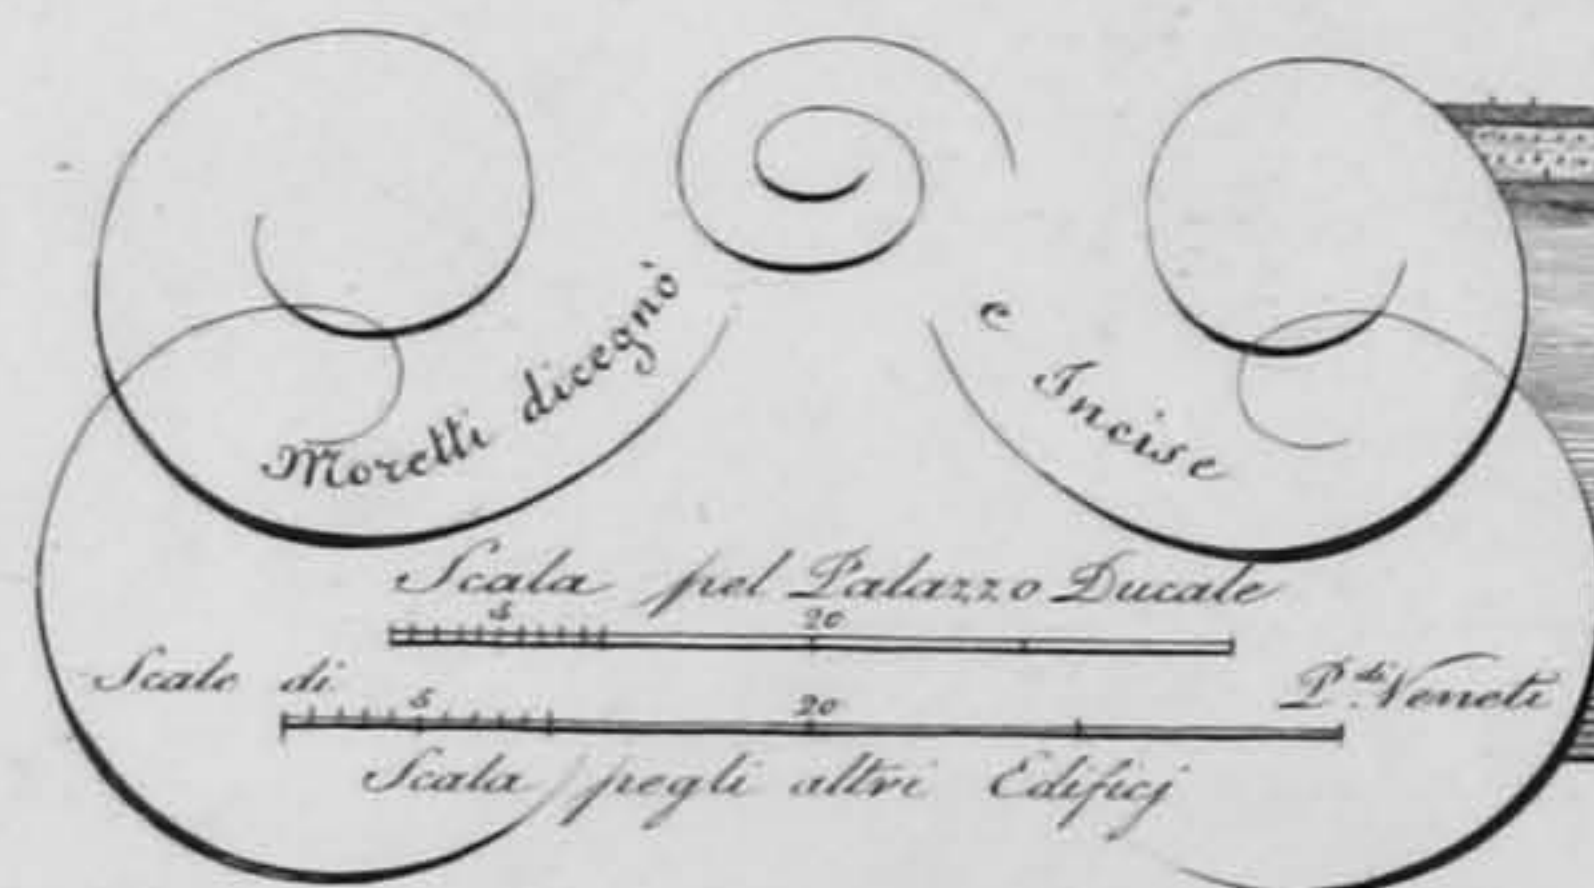 Moretti dicegnò e Incise
Scala pel Palazzo Ducale
5 20
Scale di P.di Veneti
5 20
Scala pegli altri Edificj